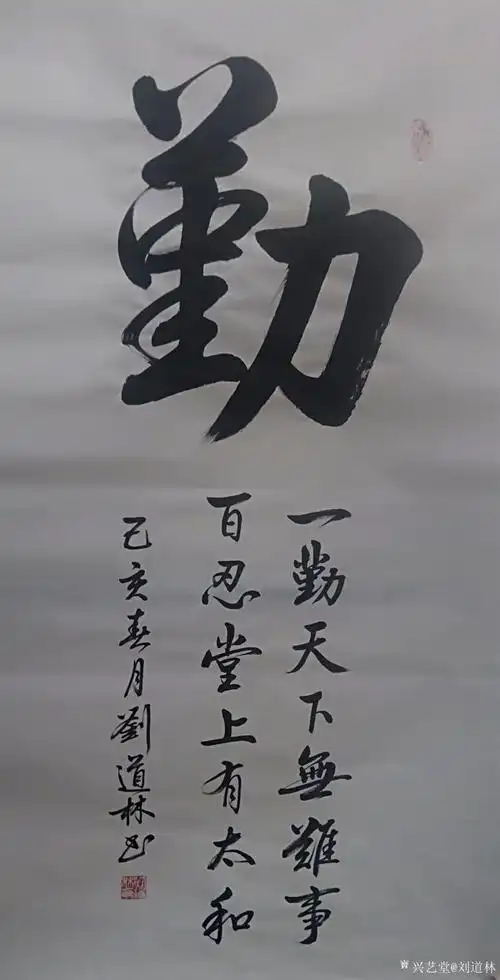 勤
一勤天下無難事
百忍堂上有太和
己亥春月劉道林书
兴艺堂@刘道林